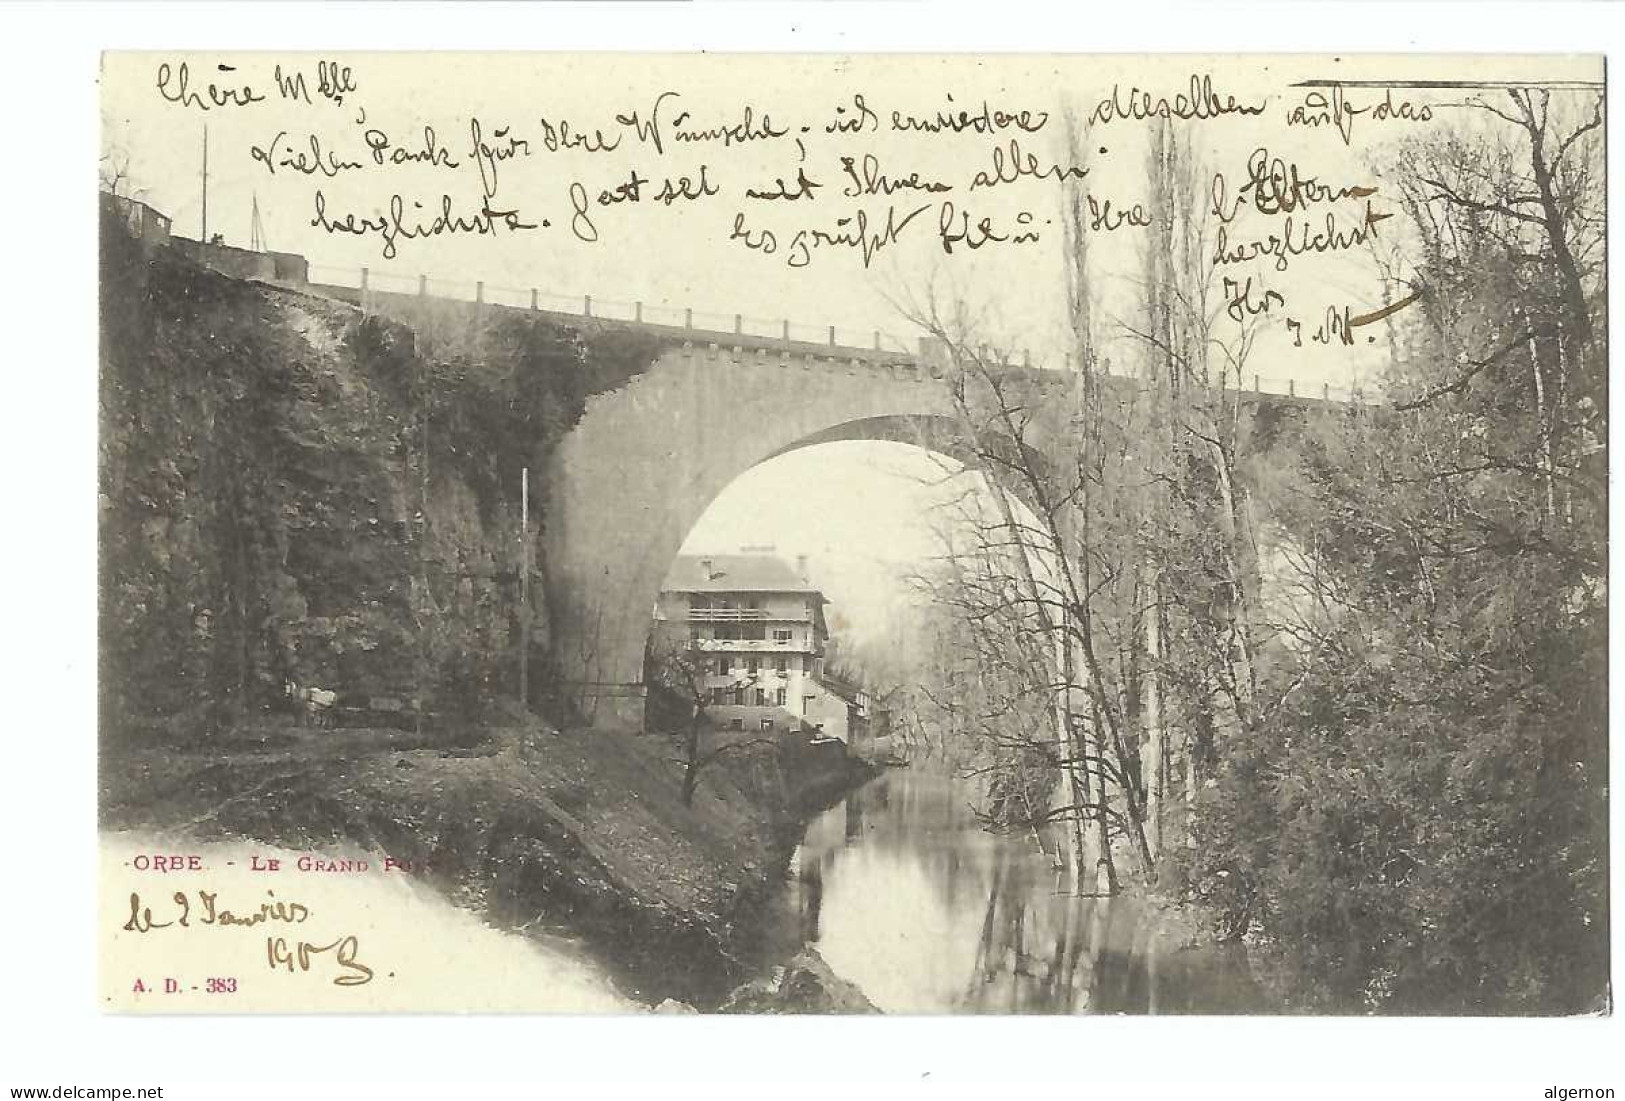 Chère Mlle,
Vielen Dank für Ihre Wünsche; ich erwiedere dieselben aufs das
herzlichste. Gott sei mit Ihnen allen.
Es grüßt Sie u. Ihre l. Eltern
herzlichst
J. M.
-ORBE. - LE GRAND
le 2 Janvier
190
A. D. - 383
www.delcampe.net
algernon